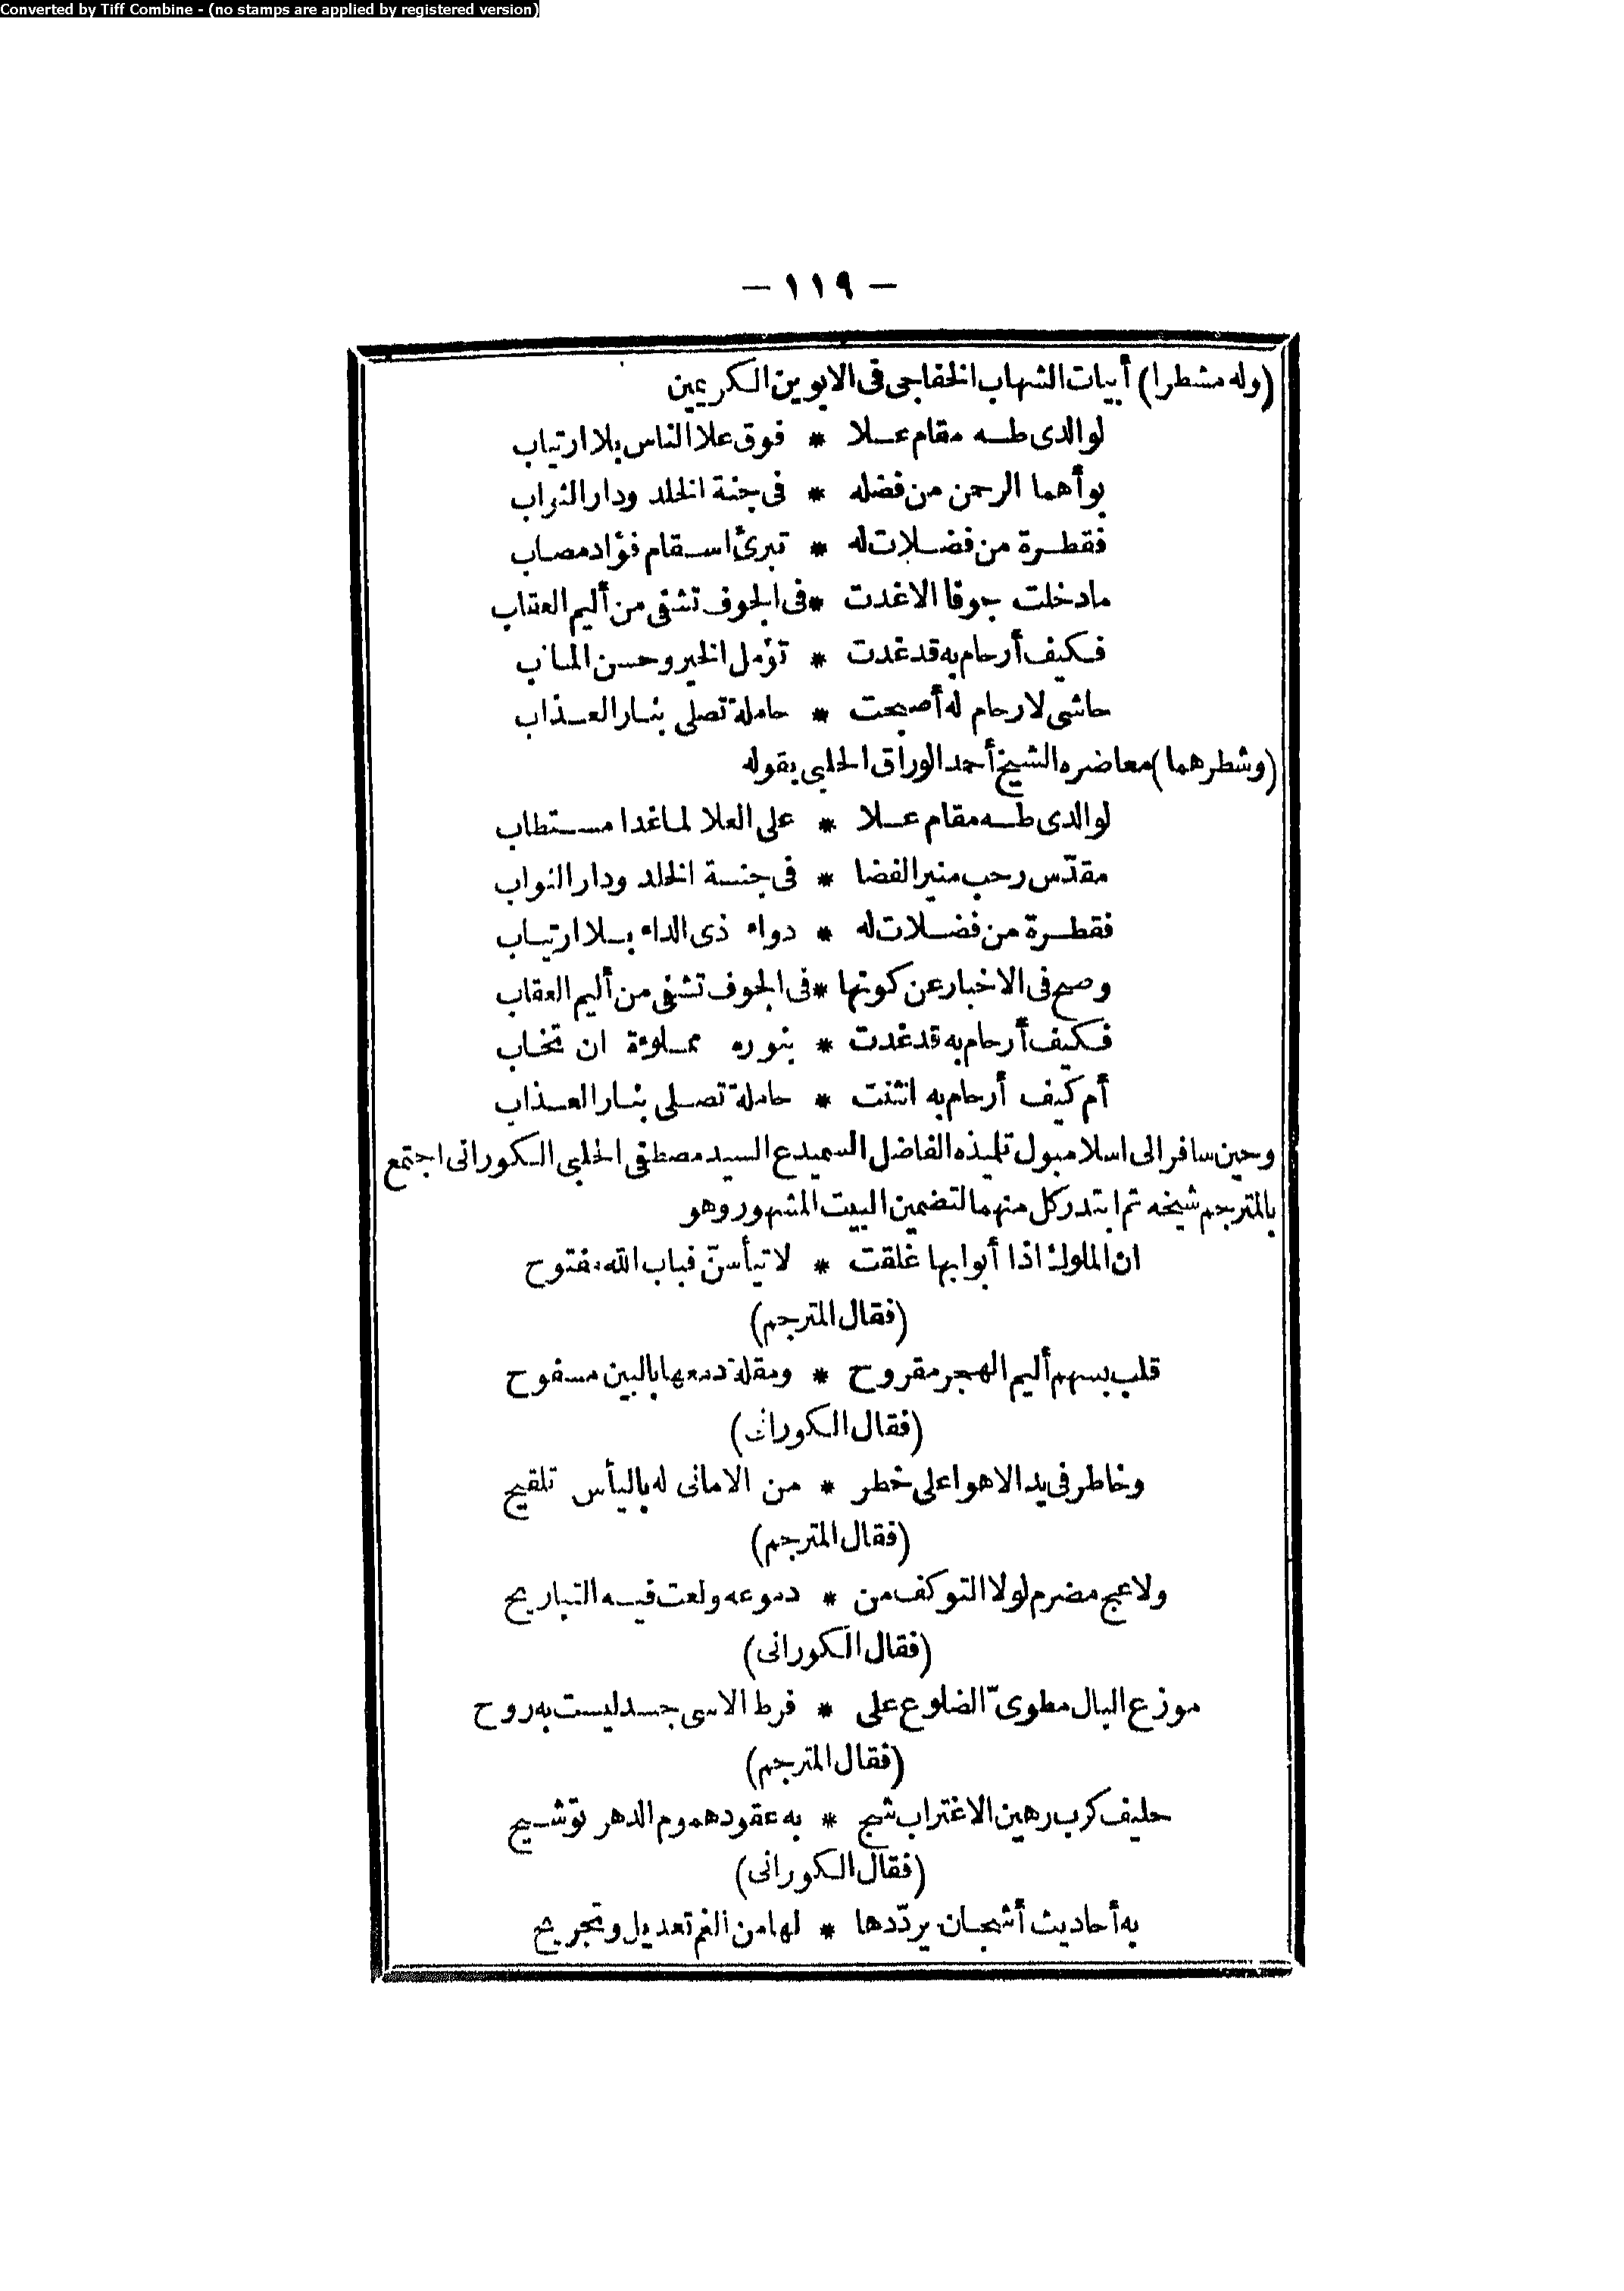 Converted by Tiff Combine - (no stamps are applied by registered version)
— ١١٩ —
(وله مشطرا) أبيات الشهاب الخفاجى فى الابوين الكريمين
لوالدى طه مقام علا * فوق علا الناس بلا ارتياب
بوأهما الرحمن من فضله * فى جنة الخلد ودار الثواب
فقطرة من فضلات له * تبرئ اسقام فؤاد مصاب
مادخلت جوفا الاغدت * فى الجوف تشفى من أليم العقاب
فكيف أرحام به قد غدت * تؤمل الخير وحسن المآب
حاشى لارحام له أصبحت * حاملة تصلى بنار العذاب
(وشطرهما) معاضره الشيخ أحمد الوراق الحلبى بقوله
لوالدى طه مقام علا * على العلا لماغدا مستطاب
مقدّس رحب منير الفضا * فى جنة الخلد ودار الثواب
فقطرة من فضلات له * دواء ذى الداء بلا ارتياب
وصح فى الاخبار عن كونها * فى الجوف تشفى من أليم العقاب
فكيف أرحام به قد غدت * بنوره مملوءة ان تخاب
أم كيف أرحام به انثنت * حاملة تصلى بنار العذاب
وحين سافر الى اسلامبول تلميذه الفاضل السميدع السيد مصطفى الحلبى الكورانى اجتمع
بالمترجم شيخه ثم ابتدر كل منهما لتضمين البيت المشهور وهو
ان الملوك اذا أبوابها غلقت * لا تيأسنّ فباب الله مفتوح
(فقال المترجم)
قلب بسهم أليم الهجر مقروح * ومقلة دمعها بالبين مسفوح
(فقال الكورانى)
وخاطر فى يد الاهوا على خطر * من الامانى له باليأس تلقيح
(فقال المترجم)
ولاعج مضرم لولا التوكف من * دموعه ولعت فيه التباريح
(فقال الكورانى)
موزع البال مطوىّ الضلوع على * فرط الاسى جسد ليست به روح
(فقال المترجم)
حليف كرب رهين الاغتراب شج * به عقود هموم الدهر توشيح
(فقال الكورانى)
به أحاديث أشجان يردّدها * لها من الغم تعديل وتجريح